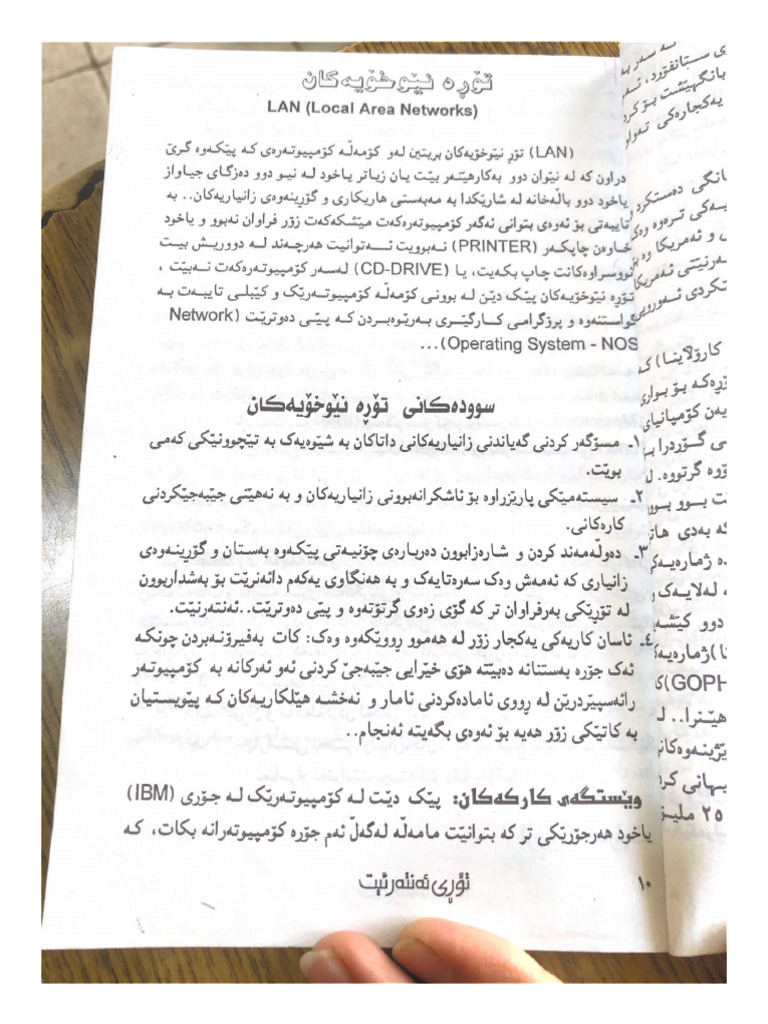 تۆڕە نێوخۆیەکان
LAN (Local Area Networks)
(LAN) تۆڕ نێوخۆیەکان بریتین لەو کۆمەڵە کۆمپیوتەرەی کە پێکەوە گرێ
دراون کە لە نێوان دوو بەکارهێنەر بێت یان زیاتر یاخود لە نیو دوو دەزگای جیاواز
یاخود دوو باڵەخانە لە شارێکدا بە مەبەستی هاریکاری و گۆڕینەوەی زانیاریەکان.. بە
تایبەتی بۆ ئەوەی بتوانی ئەگەر کۆمپیوتەرەکەت مێشکەکەت زۆر فراوان نەبوو و یاخود
خاوەن چاپکەر (PRINTER) نەبوویت ئەتوانیت هەرچەند لە دووریش بیت
نووسراوەکانت چاپ بکەیت، یا (CD-DRIVE) لەسەر کۆمپیوتەرەکەت نەبێت ،
تۆڕە نێوخۆیەکان پێک دێن لە بوونی کۆمەڵە کۆمپیوتەرێک و کێبڵی تایبەت بە
گواستنەوە و پرۆگرامی کارگێڕی بەڕێوەبردن کە پێی دەوترێت (Network
Operating System - NOS)...
سوودەکانی تۆڕە نێوخۆیەکان
١. مسۆگەر کردنی گەیاندنی زانیاریەکانی داتاکان بە شێوەیەک بە تێچوونێکی کەمی
بوێت.
٢. سیستەمێکی پارێزراوە بۆ ئاشکرانەبوونی زانیاریەکان و بە نەهێنی جێبەجێکردنی
کارەکانی.
٣. دەوڵەمەند کردن و شارەزابوون دەربارەی چۆنیەتی پێکەوە بەستان و گۆڕینەوەی
زانیاری کە ئەمەش وەک سەرەتایەک و بە هەنگاوی یەکەم دائەنرێت بۆ بەشداربوون
لە تۆڕێکی بەرفراوان تر کە گۆی زەوی گرتۆتەوە و پێی دەوترێت..ئەنتەرنێت.
٤. ئاسان کاریەکی یەکجار زۆر لە هەموو ڕوویێکەوە وەک: کات بەفیڕۆنەبردن چونکە
ئەک جۆرە بەستنانە دەبیتە هۆی خێرایی جێبەجێ کردنی ئەو ئەرکانە بە کۆمپیوتەر
رائەسپێردرێن لە ڕووی ئامادەکردنی ئامار و نەخشە هێلکاریەکان کە پێویستیان
بە کاتێکی زۆر هەیە بۆ ئەوەی بگەیتە ئەنجام..
وێستگەی کارکەکان: پێک دێت لە کۆمپیوتەرێک لە جۆری (IBM)
یاخود هەرجۆرێکی تر کە بتوانێت مامەڵە لەگەڵ ئەم جۆرە کۆمپیوتەرانە بکات، کە
تۆڕی ئەنتەرنێت
١٠